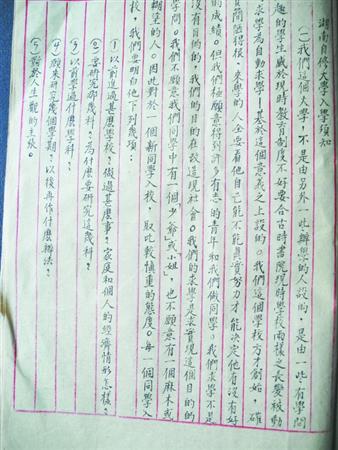 湖南自修大學入學須知
(一)我們這個大學,不是由另外一些辦學的人設的,是由一些有學問
趣的學生感於現時教育制度不好要合古時書院現時學校兩樣之長變被動
求學為自動求學——基於這個意義之上設的。我們這個學校方才創始,確
實簡陋得很,來學的人全要看他自己能不能真實努力才能決定他有沒有好
的成績。但我們極願意得到許多有志的青年和我們做同學。我們求學不是
沒有目的的,我們的目的在改造現社會。我們的求學是求實現這個目的的
學問。我們不願意我們同學中有一個「少爺」或「小姐」,也不願意有一個麻木或
糊塗的人。因此對於一個新同學入校,取比較慎重的態度。每一個同學入
校,我們要明白他下列幾項:
①以前進過甚麼學校?做過甚麼事?家庭和個人的經濟情形怎樣?
②要研究那幾科?為什麼要研究這幾科?
③以前學過什麼學科?
④願來研究幾個學期?以後再作什麼辦法?
⑤對於人生觀的主張。